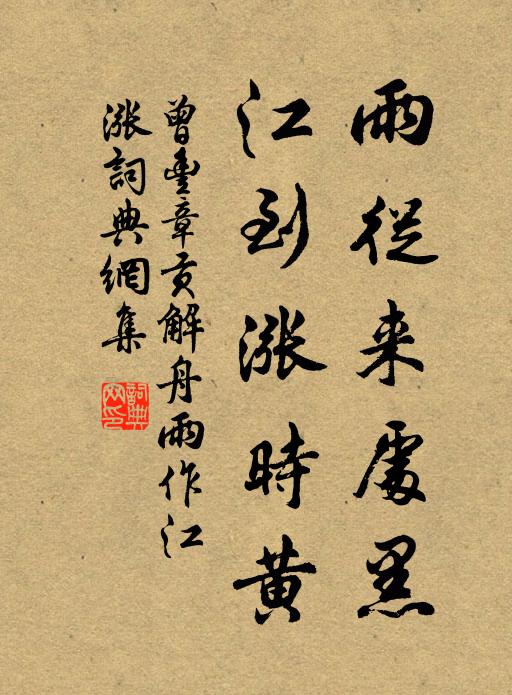 雨從来處黑
江到漲時黄
曾豊章貢解舟雨作江
漲詞典網集
詞典
网印